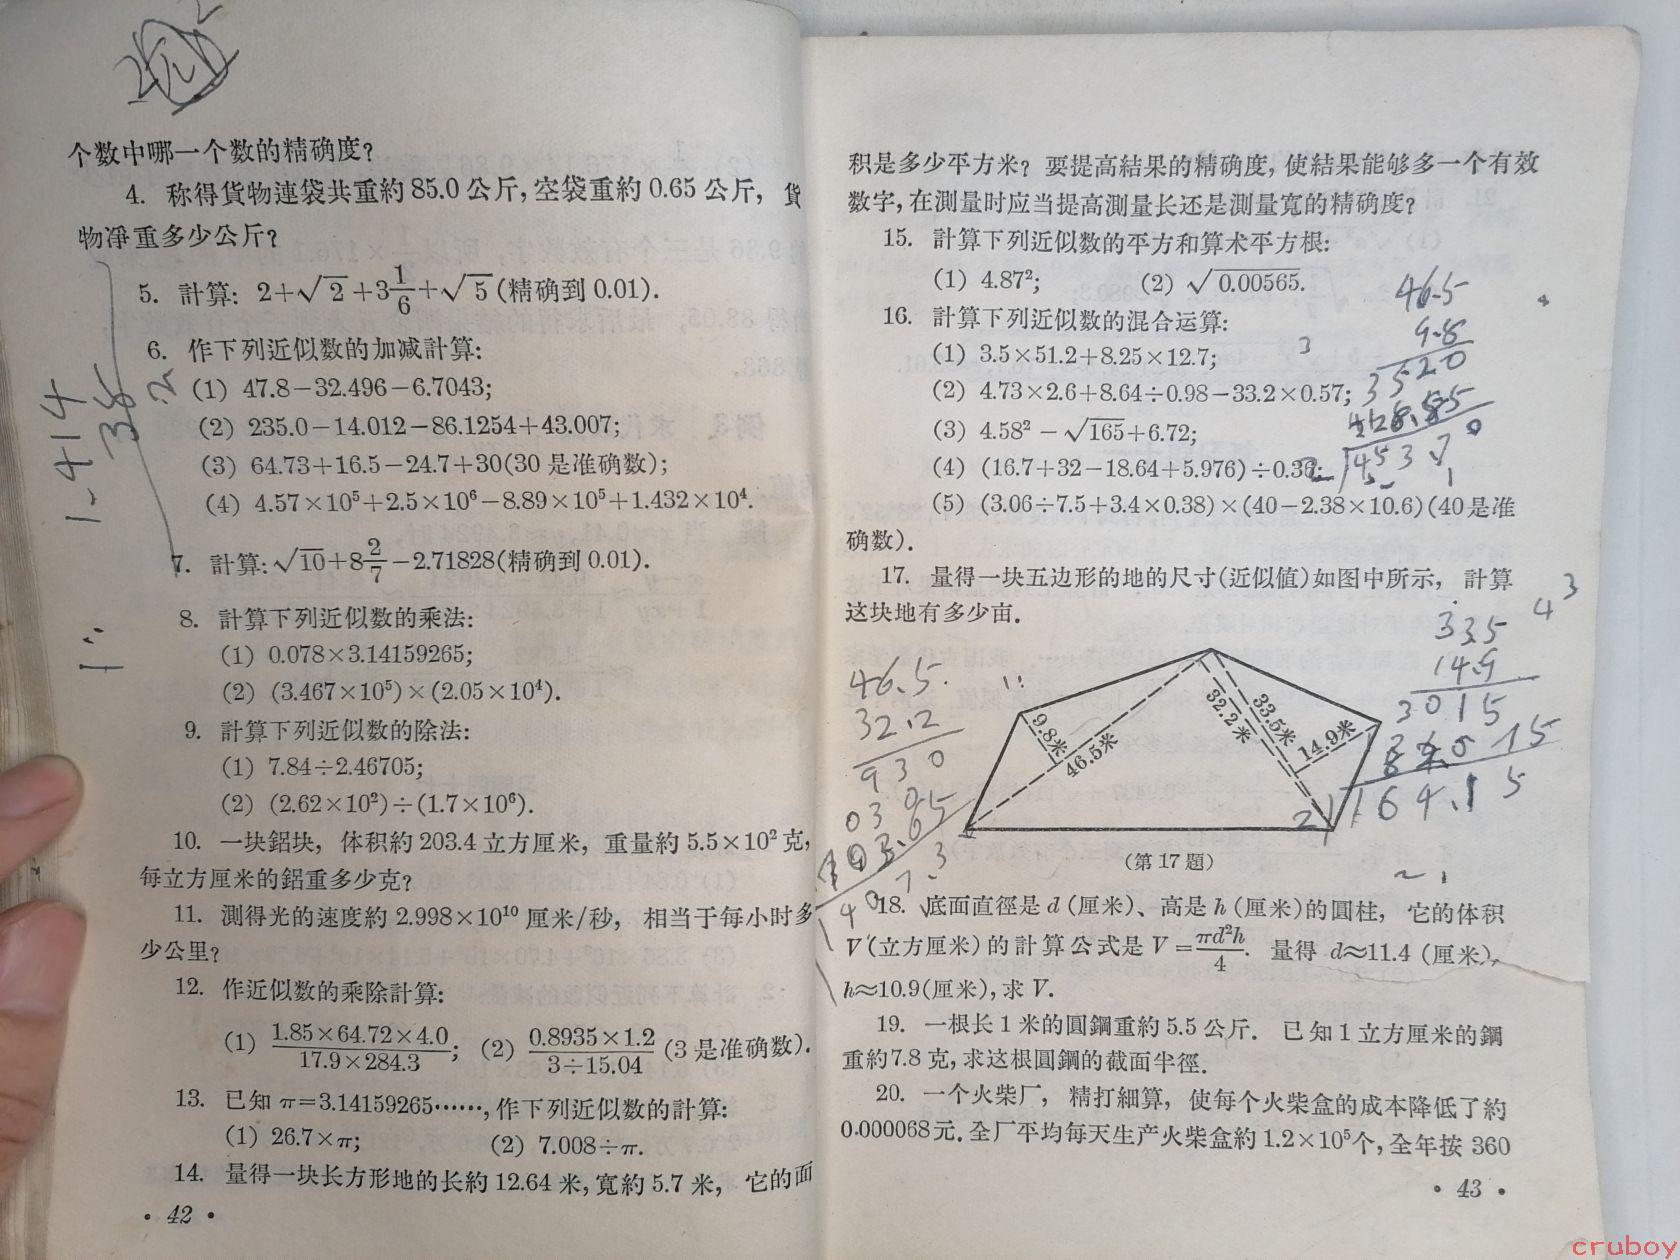 个数中哪一个数的精确度?
4. 称得貨物連袋共重約 85.0 公斤, 空袋重約 0.65 公斤, 貨
物凈重多少公斤?
5. 計算: 2+√2+3 1/6+√5 (精确到 0.01).
6. 作下列近似数的加减計算:
(1) 47.8-32.496-6.7043;
(2) 235.0-14.012-86.1254+43.007;
(3) 64.73+16.5-24.7+30(30 是准确数);
(4) 4.57×10⁵+2.5×10⁶-8.89×10⁵+1.432×10⁴.
7. 計算: √10+8 2/7-2.71828(精确到 0.01).
8. 計算下列近似数的乘法:
(1) 0.078×3.14159265;
(2) (3.467×10⁵)×(2.05×10⁴).
9. 計算下列近似数的除法:
(1) 7.84÷2.46705;
(2) (2.62×10²)÷(1.7×10⁶).
10. 一块鋁块, 体积約 203.4 立方厘米, 重量約 5.5×10² 克,
每立方厘米的鋁重多少克?
11. 測得光的速度約 2.998×10¹⁰ 厘米/秒, 相当于每小时多
少公里?
12. 作近似数的乘除計算:
(1) 1.85×64.72×4.0/17.9×284.3; (2) 0.8935×1.2/3÷15.04 (3 是准确数).
13. 已知 π=3.14159265……, 作下列近似数的計算:
(1) 26.7×π; (2) 7.008÷π.
14. 量得一块长方形地的长約 12.64 米, 寬約 5.7 米, 它的面
• 42 •
1.414
积是多少平方米? 要提高結果的精确度, 使結果能够多一个有效
数字, 在測量时应当提高測量长还是測量寬的精确度?
15. 計算下列近似数的平方和算术平方根:
(1) 4.87²; (2) √0.00565.
16. 計算下列近似数的混合运算:
(1) 3.5×51.2+8.25×12.7;
(2) 4.73×2.6+8.64÷0.98-33.2×0.57;
(3) 4.58²-√165+6.72;
(4) (16.7+32-18.64+5.976)÷0.36;
(5) (3.06÷7.5+3.4×0.38)×(40-2.38×10.6)(40 是准
确数).
17. 量得一块五边形的地的尺寸(近似值)如图中所示, 計算
这块地有多少亩.
9.8米
46.5米
32.2米
33.5米
14.9米
(第 17 題)
18. 底面直徑是 d (厘米)、高是 h (厘米)的圓柱, 它的体积
V (立方厘米) 的計算公式是 V=πd²h/4. 量得 d≈11.4 (厘米),
h≈10.9(厘米), 求 V.
19. 一根长 1 米的圓鋼重約 5.5 公斤. 已知 1 立方厘米的鋼
重約 7.8 克, 求这根圓鋼的截面半徑.
20. 一个火柴厂, 精打細算, 使每个火柴盒的成本降低了約
0.000068元. 全厂平均每天生产火柴盒約 1.2×10⁵个, 全年按 360
• 43 •
46.5
9.8
3520
335
14.9
3015
164.15
46.5
32.2
930
cruboy